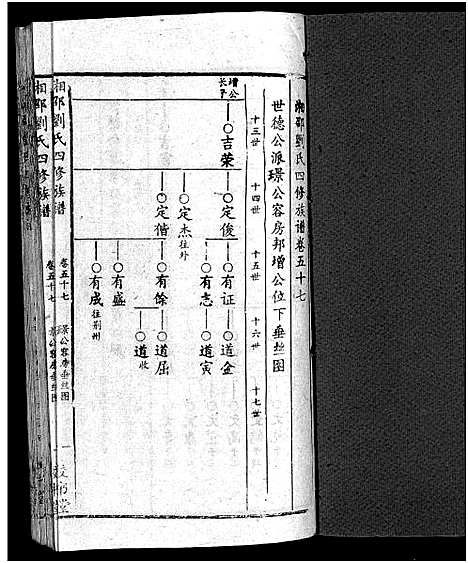 湘邵劉氏四修族譜卷五十七
世德公派璟公容房邦增公位下垂丝图
十三世 十四世 十五世 十六世 十七世
增公長子
吉荣 定俊 有证 道金
有志 道寅
定杰往外
定偕 有馀 道屈
道收
有盛
有成往荆州
湘邵劉氏四修族譜 卷五十七 璟公容房垂丝图 一
湘邵劉氏四修族譜 卷五十七 璟公容房垂丝图